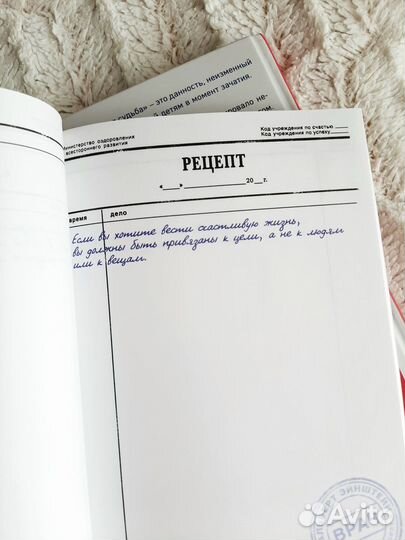 судьба» – это данность, неизменный
детям в момент зачатия.
Министерство оздоровления
всестороннего развития
Код учреждения по счастью
Код учреждения по успеху
РЕЦЕПТ
«___»______________20__г.
время дело
Если вы хотите вести счастливую жизнь,
вы должны быть привязаны к цели, а не к людям
или к вещам.
ЭНШТЕЙН
ВРАЧ
Avito